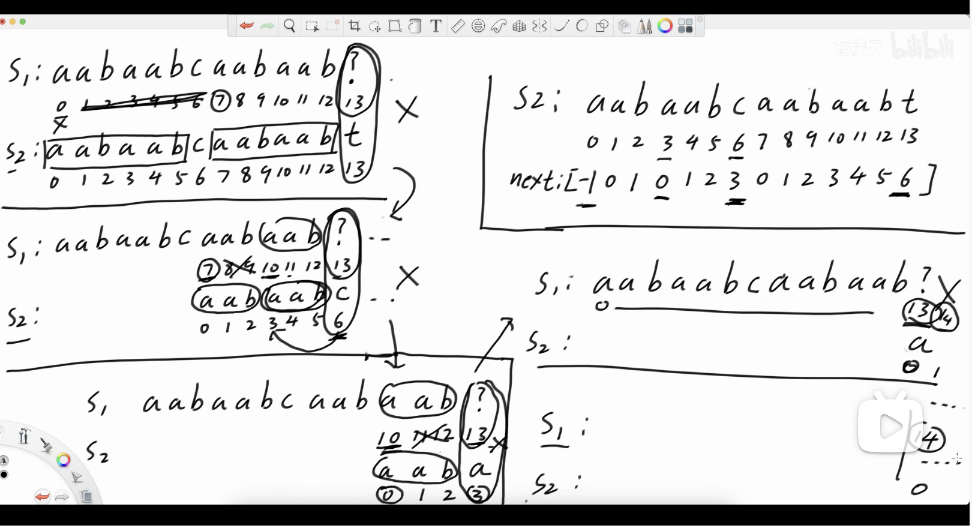 S1: aabaabcaabaab?
0 1 2 3 4 5 6 7 8 9 10 11 12 13
S2: aabaabcaabaabt
0 1 2 3 4 5 6 7 8 9 10 11 12 13
S1: aabaabcaabaab? ...
7 8 9 10 11 12 13
S2: aabaabc ...
0 1 2 3 4 5 6
S1 aabaabcaabaab?
10 11 12 13
S2 aaba
0 1 2 3
bilibili
S2: aabaabcaabaabt
0 1 2 3 4 5 6 7 8 9 10 11 12 13
next: [-1 0 1 0 1 2 3 0 1 2 3 4 5 6]
S1: aabaabcaabaab?
0 13 14
S2: a
0 1
S1: 14
S2: 0